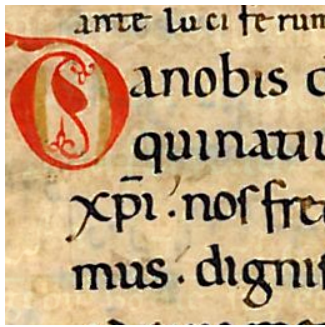 ante lu ci ferum
Danobis d
quinatiu
xp̄i ⁖ noſ fre
mus . digniſ